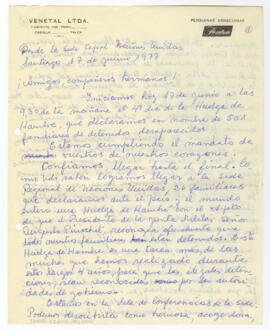 VENETAL LTDA.
PERSIANAS VENECIANAS
CASILLA TALCA
Desde la Sede Cepal Naciones Unidas
Santiago 17 de junio 1977
¡Amigos, compañeros, hermanos!
Iniciamos hoy 17 de junio a las
9.30 de la mañana el 4º día de la Huelga de
Hambre, que declaramos en nombre de 501
familiares de detenidos desaparecidos.
Estamos cumpliendo el mandato de
nuestros corazones.
Confiamos llegar hasta el final, lo
logramos llegar a la Sede
Regional de Naciones Unidas, 26 familiares
que declaramos ante el país y el mundo
entero una "Huelga de Hambre" con el objeto
de que el Presidente de la Junta Militar Señor
Augusto Pinochet, reconozca
todo nuestros familiares están detenidos. Esta
Huelga de Hambre es una tarea más, de las
muchas que hemos realizado durante
estos largos 4 años para que las ilegales deten-
ciones, sean reconocidas por las autori-
dades de gobierno.
Estamos en la Sala de Conferencias de la Sede.
Podemos describirla como hermosa, acogedora,